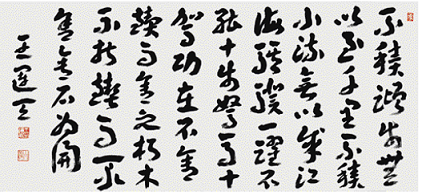 不積蹞步無
以至千里不積
小流無以成江
海騏驥一躍不
能十步駑馬十
駕功在不舍
鍥而舍之朽木
不折鍥而不
舍金石為開
王